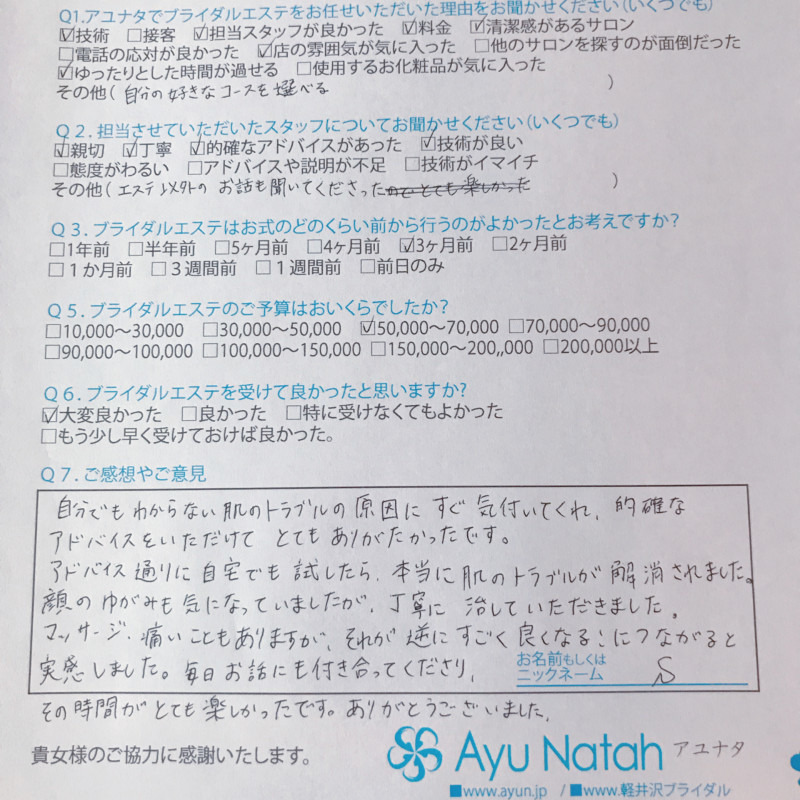 Q1.アユナタでブライダルエステをお任せいただいた理由をお聞かせください（いくつでも）
☑技術 □接客 ☑担当スタッフが良かった ☑料金 ☑清潔感があるサロン
□電話の応対が良かった ☑店の雰囲気が気に入った □他のサロンを探すのが面倒だった
☑ゆったりとした時間が過せる □使用するお化粧品が気に入った
その他（自分の好きなコースを選べる ）
Q2.担当させていただいたスタッフについてお聞かせください（いくつでも）
☑親切 ☑丁寧 ☑的確なアドバイスがあった ☑技術が良い
□態度がわるい □アドバイスや説明が不足 □技術がイマイチ
その他（エステ以外の お話も聞いてくださったのでとても楽しかった ）
Q3.ブライダルエステはお式のどのくらい前から行うのがよかったとお考えですか？
□1年前 □半年前 □5ヶ月前 □4ヶ月前 ☑3ヶ月前 □2ヶ月前
□1か月前 □3週間前 □1週間前 □前日のみ
Q5.ブライダルエステのご予算はおいくらでしたか？
□10,000〜30,000 □30,000〜50,000 ☑50,000〜70,000 □70,000〜90,000
□90,000〜100,000 □100,000〜150,000 □150,000〜200,,000 □200,000以上
Q6.ブライダルエステを受けて良かったと思いますか?
☑大変良かった □良かった □特に受けなくてもよかった
□もう少し早く受けておけば良かった。
Q7.ご感想やご意見
自分でもわからない肌のトラブルの原因にすぐ気付いてくれ、的確な
アドバイスをいただけて とてもありがたかったです。
アドバイス通りに自宅でも試したら、本当に肌のトラブルが解消されました。
顔のゆがみも気になっていましたが、丁寧に治していただきました。
マッサージ、痛いこともありますが、それが逆にすごく良くなる！につながると
実感しました。毎日お話にも付き合ってくださり、
お名前もしくは
ニックネーム S
その時間がとても楽しかったです。ありがとうございました。
貴女様のご協力に感謝いたします。
Ayu Natah アユナタ
■www.ayun.jp / ■www.軽井沢ブライダル